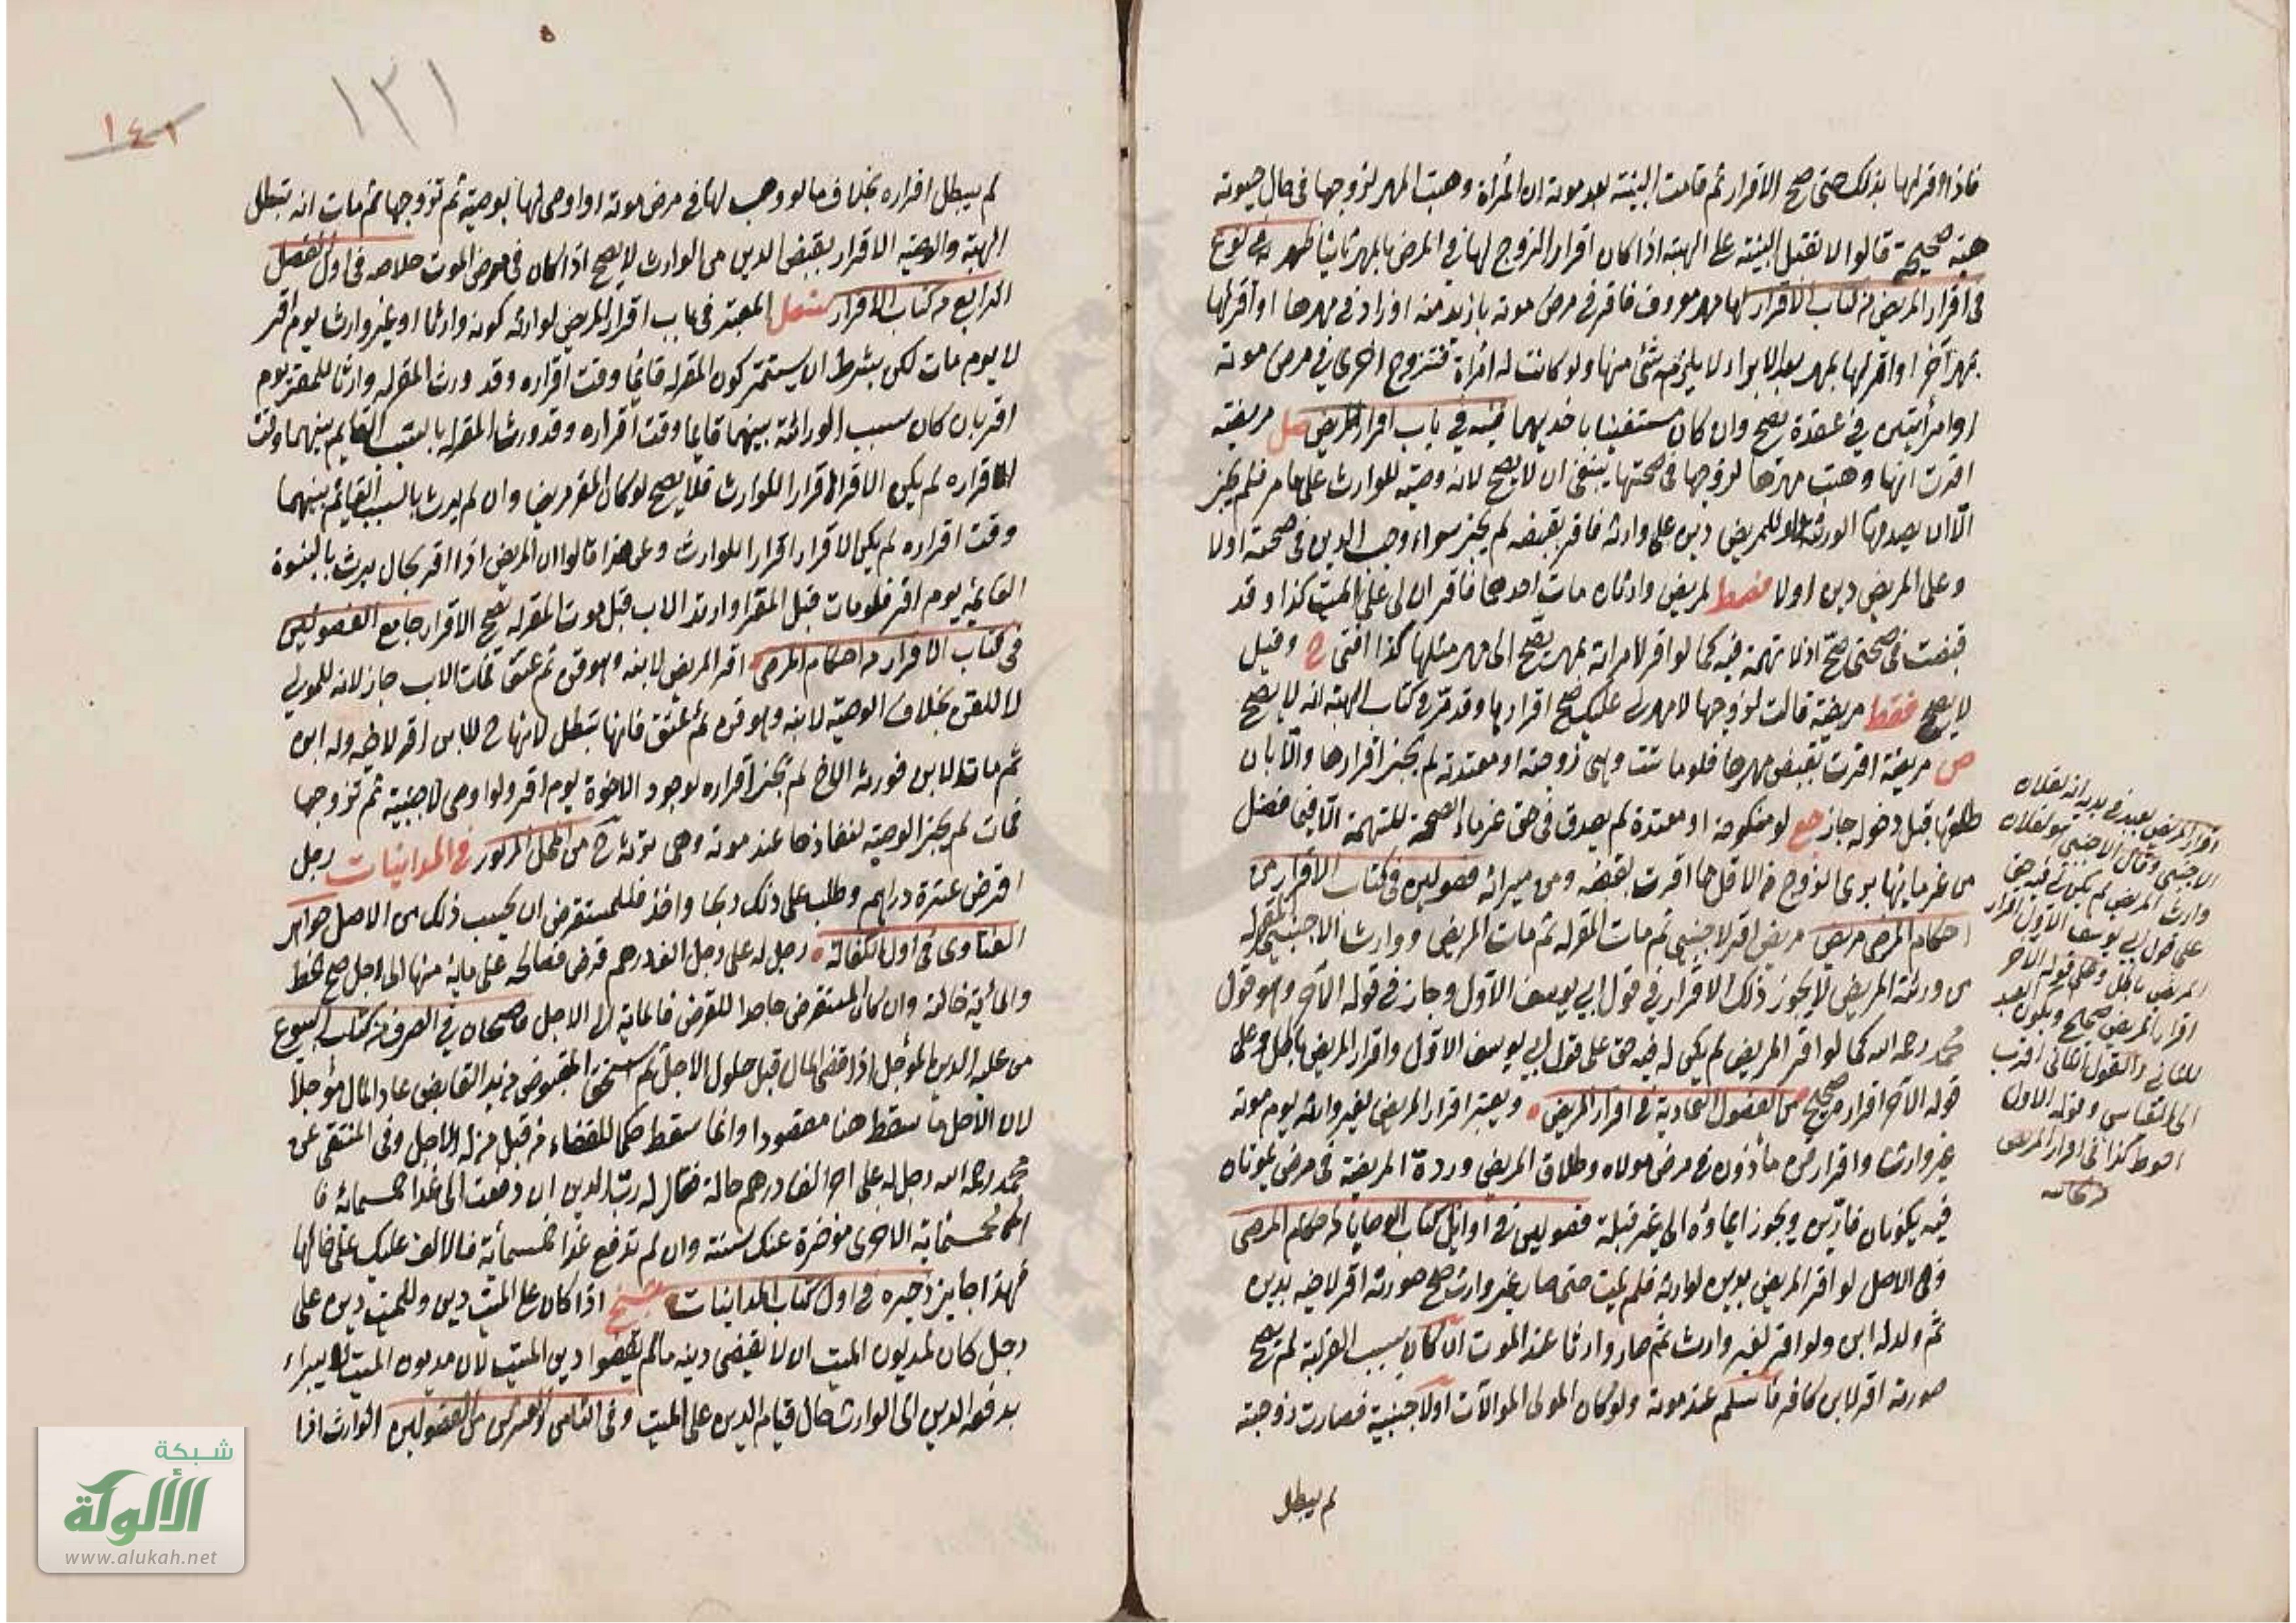 فاذا اقر لها بذلك حتى صح الاقرار ثم قامت البينة بعد موته ان المرأة وهبت المهر لزوجها في حال حيوته
هبة صحيحة قالوا لا تقبل البينة على الهبة اذا كان اقرار الزوج لها في المرض بالمهر ثانيا ظهيريه في نوع
في اقرار المريض من كتاب الاقرار لها مهر معروف فاقر في مرض موته بازيد منه او زاد في مهرها او اقر لها
بمهر آخر او اقر لها بمهر بعد الابراء لا يلزمه شئ منها ولو كانت له امرأة فتزوج اخرى في مرض موته
او امرأتين في عقدة يصح وان كان مستغنيا باحديهما قنيه في باب اقرار المريض صل مريضة
اقرت انها وهبت مهرها لزوجها في صحتها ينبغى ان لا يصح لانه وصية للوارث على ما مر فلم يجز
الا ان يصدقها الورثة ولو للمريض دين على وارثه فاقر بقبضه لم يجز سواء وجب الدين في صحته اولا
وعلى المريض دين اولا فقط لمريض وارثاه مات احدهما فاقر ان لى على الميت كذا وقد
قبضت في صحتى صح اذ لا تهمة فيه كما لو اقر لامرأته بمهر يصح الى مهر مثلها كذا افتى ح وقيل
لا يصح فقط مريضة قالت لزوجها لا مهر لى عليك صح اقرارها وقد مر في كتاب الهبة انه لا يصح
ص مريضة اقرت بقبض مهرها فلو ماتت وهى زوجته او معتدته لم يجز اقرارها والا بان
طلقها قبل دخوله جاز جع لو منكوحة او معتدة لم يصدق في حق غرماء الصحة للتهمة الا فيما فضل
من غرمائها يوى الزوج فالاقل مما اقرت بقبضه ومن ميراثه فصولين في كتاب الاقرار من
احكام المرضى مريض اقر لاجنبى ثم مات المقر له ثم مات المريض ووارث الاجنبى المقر له
من ورثة المريض لا يجوز ذلك الاقرار في قول ابي يوسف الاول وجاز في قوله الآخر وهو قول
محمد رحمه الله كما لو اقر المريض لم يكن له فيه حق على قول ابي يوسف الاول واقرار المريض باطل وعلى
قوله الآخر اقراره صحيح من الفصول العمادية في اقرار المريض ويعتبر اقرار المريض لغير وارثه يوم موته
غير وارث واقرار قن مأذون في مرض مولاه وطلاق المريض وردة المريضة في مرض يموتان
فيه يكونان فارين ويجوز ايماؤه الى غير قبلة فصولين في اوائل كتاب الوصايا من احكام المرضى
وفى الاصل لو اقر المريض بدين لوارثه فلم يمت حتى صار غير وارث صح صورته اقر لاخيه بدين
ثم ولد له ابن ولو اقر لغير وارث ثم صار وارثا عند الموت ان كان بسبب القرابة لم يصح
صورته اقر لابن كافر فاسلم عند موته ولو كان المولى الموالات او لاجنبية فصارت زوجته
لم يبطل
اقرار المريض بعبد في يديه انه لفلان
الاجنبى وقال الاجنبى هو لفلان
وارث المريض لم يكن لى فيه حق
على قول ابي يوسف الاول اقرار
المريض باطل وعلى قوله الآخر
اقرار المريض صحيح ويكون العبد
للثانى والقول الثانى اقرب
الى القياس وقوله الاول
احوط كذا في اقرار المريض
١٢١
١٤١
لم يبطل اقراره بخلاف ما لو وهب لها في مرض موته او اوصى لها بوصية ثم تزوجها ثم مات انه تبطل
الهبة والوصية الاقرار بقبض الدين من الوارث لا يصح اذا كان في مرض الموت خلاصه في اول الفصل
الرابع من كتاب الاقرار المعتبر في باب اقرار المريض لوارثه كونه وارثا او غير وارث يوم اقر
لا يوم مات لكن بشرط ان يستمر كون المقر له قائما وقت اقراره وقد ورث المقر له وارثا للمقر يوم
اقر بان كان سبب الوراثة بينهما قايما وقت اقراره وقد ورث المقر له بالسبب القايم بينهما وقت
اقراره لم يكن الاقرار اقرارا للوارث فلا يصح لو كان المقر مريضا وان لم يرث بالسبب القائم بينهما
وقت اقراره لم يكن الاقرار اقرارا للوارث وعن هذا قالوا ان المريض اذا اقر بحال يرث بالبنوة
القائمة يوم اقر فلو مات قبل المقر او ارتد الاب قبل موت المقر له يصح الاقرار جامع الفصولين
في كتاب الاقرار من احكام المرضى اقر المريض لابنه وهو قن ثم عتق فمات الاب جاز لانه للمولى
لا للقن بخلاف الوصية لابنه وهو قن ثم عتق فانها تبطل لانها ح للابن اقر لاخيه وله ابن
ثم مات الابن فورثه الاخ لم يجز اقراره لوجود الاخوة يوم اقر ولو اوصى لاجنبية ثم تزوجها
فمات لم يجز الوصية لنفاذها عند موته وهى ترثه ح من المحل المزبور في المداينات رجل
اقرض عشرة دراهم وطلب على ذلك ربحا واخذ فللمستقرض ان يحسب ذلك من الاصل جواهر
الفتاوى في اول الكفالة رجل له على رجل الف درهم قرض فصالحه على مائة منها الى اجل صح الحط
والمائة حالة وان كان المستقرض جاحدا للقرض فالمائة الى الاجل قاضيخان في الصرف من كتاب البيوع
من عليه الدين المؤجل اذا قضى المال قبل حلول الاجل ثم استحق المقبوض من يد القابض عاد المال مؤجلا
لان الاجل ما سقط هنا مقصودا وانما سقط حكما للقضاء من قبل من له الاجل وفى المنتقى عن
محمد رحمه الله رجل له على آخر الف درهم حالة فقال له رب الدين ان دفعت الى غدا خمسمائة فا
لخمسمائة الاخرى مؤخرة عنك سنة وان لم تدفع غدا خمسمائة فالالف عليك على حالها
فهذا جايز ذخيره في اول كتاب المداينات اذا كان على الميت دين وللميت دين على
رجل كان لمديون الميت ان لا يقضى دينه مالم يقضوا دين الميت لان مديون الميت لا يبراء
بدفعه الدين الى الوارث حال قيام الدين على الميت وفى الثامن والعشرين من الفصولين الوارث اذا
شبكة
الألوكة
www.alukah.net